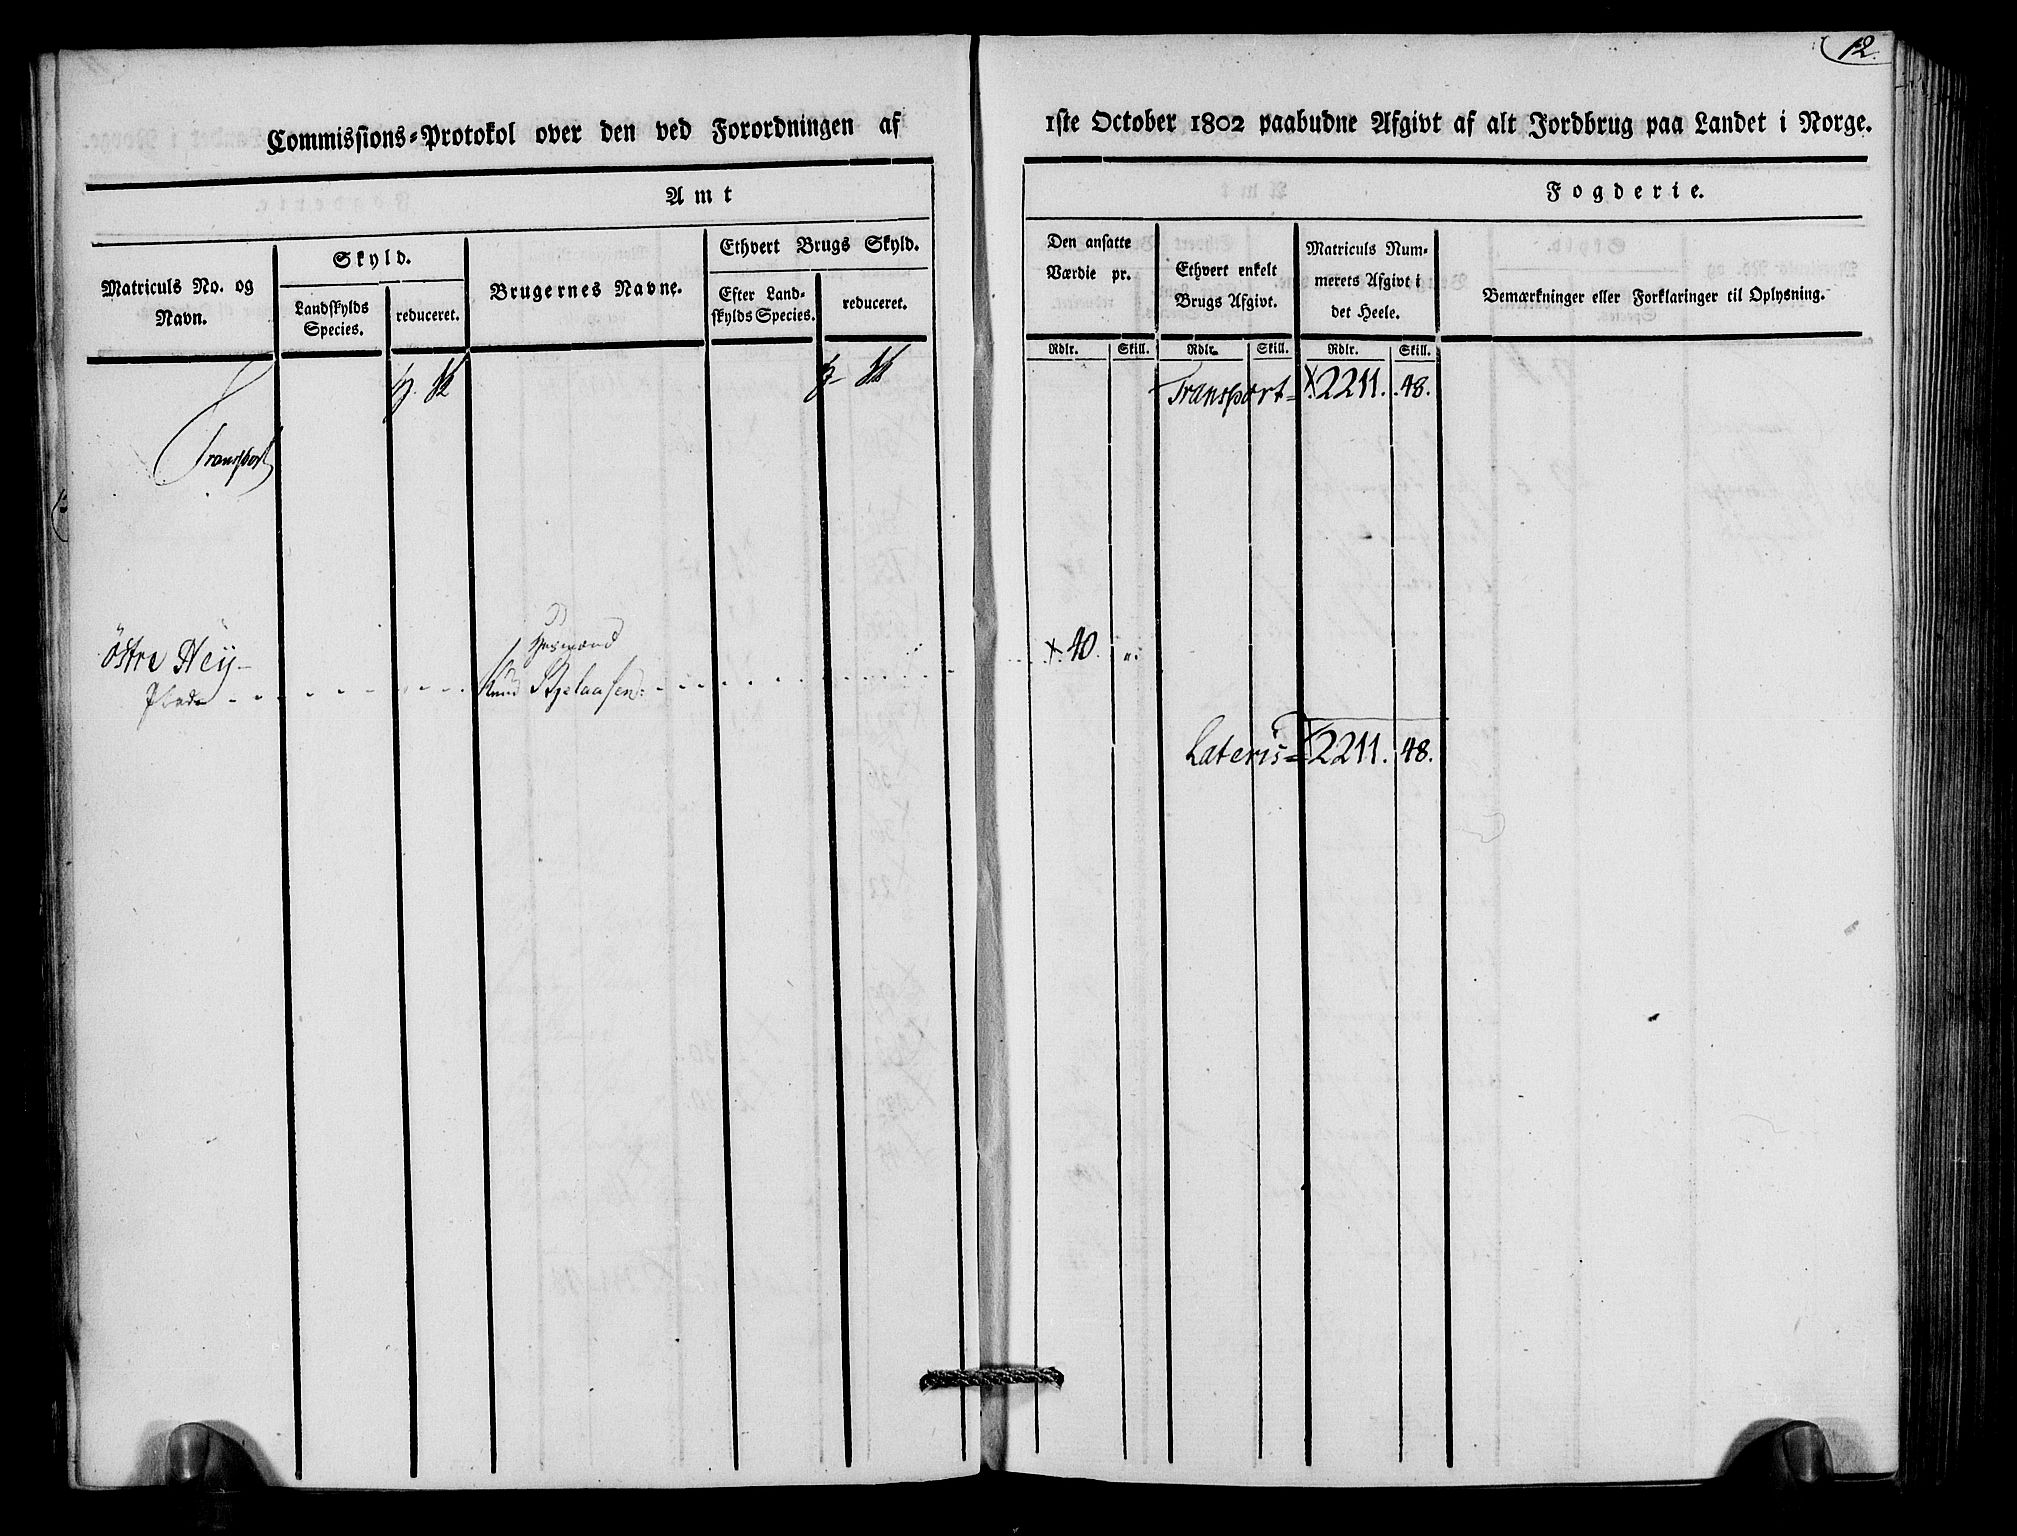 12.
Commissions-Protokol over den ved Forordningen af
1ste October 1802 paabudne Afgivt af alt Jordbrug paa Landet i Norge.
Amt
Fogderie.
Matriculs No. og
Navn.
Skyld.
Landskylds
Species.
reduceret.
Brugernes Navne.
Ethvert Brugs Skyld.
Efter Land-
skylds Species.
reduceret.
Den ansatte
Værdie pr.
Ethvert enkelt
Brugs Afgivt.
Matriculs Num-
merets Afgivt i
det Heele.
Bemærkninger eller Forklaringer til Oplysning.
Rdlr. Skill. Rdlr. Skill. Rdlr. Skill.
Transport
Transport = 2211. 48.
Östre Heÿ-
Plads
Huusmand
Knud
40.
Lateris = 2211. 48.